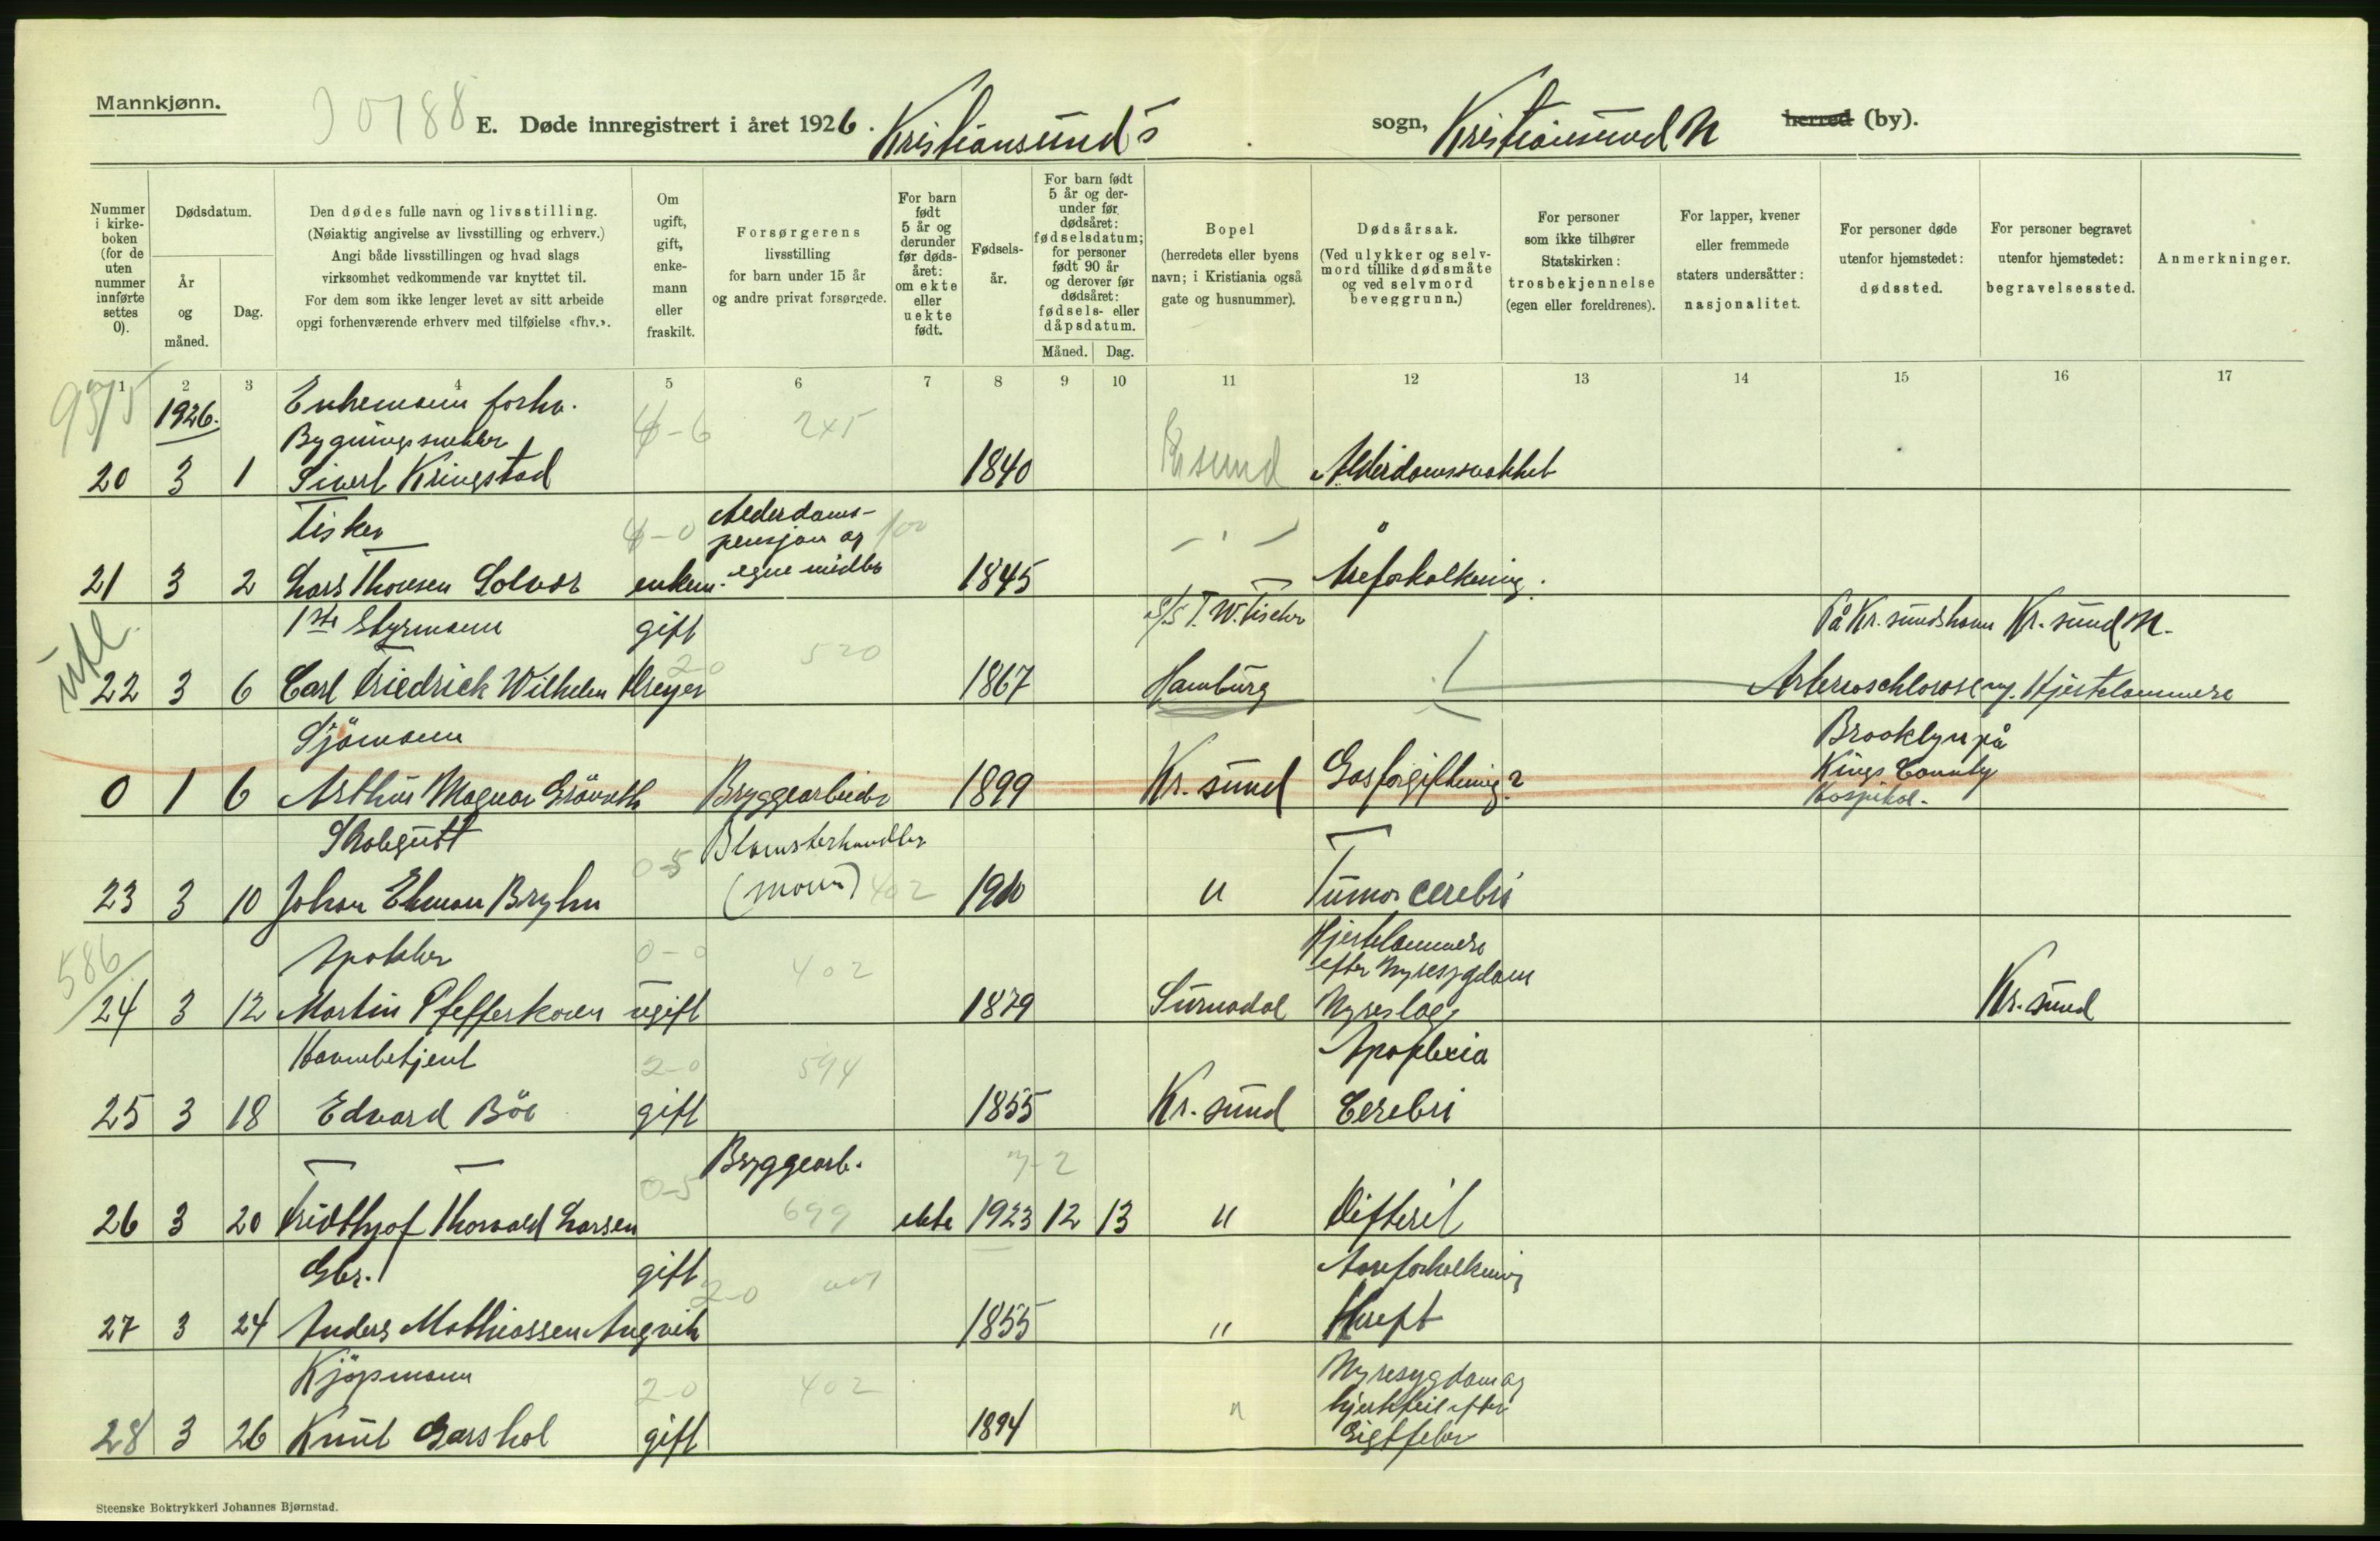 Mannkjønn.
E. Døde innregistrert i året 1926. Kristiansund's sogn, Kristiansund N herred (by).
Nummer i kirkeboken (for de uten nummer innførte settes 0).
Dødsdatum.
År og måned.
Dag.
Den dødes fulle navn og livsstilling.
(Nøiaktig angivelse av livsstilling og erhverv.)
Angi både livsstillingen og hvad slags
virksomhet vedkommende var knyttet til.
For dem som ikke lenger levet av sitt arbeide
opgi forhenværende erhverv med tilføielse «fhv.».
Om ugift, gift, enkemann eller fraskilt.
Forsørgerens livsstilling for barn under 15 år og andre privat forsørgede.
For barn født 5 år og derunder før dødsåret: om ekte eller uekte født.
Fødselsår.
For barn født 5 år og derunder før dødsåret: fødselsdatum; for personer født 90 år og derover før dødsåret: fødsels- eller dåpsdatum.
Måned. Dag.
Bopel
(herredets eller byens navn; i Kristiania også gate og husnummer).
Dødsårsak.
(Ved ulykker og selvmord tillike dødsmåte og ved selvmord beveggrunn.)
For personer som ikke tilhører Statskirken: trosbekjennelse (egen eller foreldrenes).
For lapper, kvener eller fremmede staters undersåtter: nasjonalitet.
For personer døde utenfor hjemstedet: dødssted.
For personer begravet utenfor hjemstedet: begravelsessted.
Anmerkninger.
1 2 3 4 5 6 7 8 9 10 11 12 13 14 15 16 17
1926.
Enkemann forhv.
Bygningssnekker
20 3 1 Sivert Kringstad 1840 Krsund Alderdomssvakhet
Fisker
Alderdoms-
pensjon og
egne midler
21 3 2 Lars Thomsen Solvor enkem. 1845 Åreforkalkning.
utl.
1ste Styrmann gift S/S F. W. Fischer På Kr.sundshavn Kr.sund N.
22 3 6 Carl Friedrick Wilhelm Dreyer 2-0 520 1867 Hamburg Arterioschlorose og Hjertelammere
Sjömann
Brooklyn på
Kings County
Hospital.
0 1 6 Arthur Magnar Grönvik Bryggearbeider 1899 Kr.sund Gasforgiftning?
Skolegutt
Blomsterhandler
(mor) 402
23 3 10 Johan Ekman Bryhn 1910 " Tumor cerebri
586
Apoteker 0-0 402
Hjertelammere
efter Nyresygdom
24 3 12 Martin Pfefferkorn ugift 1879 Surnadal Kr.sund
Havnebetjent 2-0 594 Apoplexia
25 3 18 Edvard Böe gift 1855 Kr.sund Cerebri
Bryggearb. 7-2
26 3 20 Fridthjof Thorvald Larsen 0-5 699 ekte 1923 12 13 " Difterit
Gbr. gift 2-0 Aareforkalkning
27 3 24 Anders Mathiassen Angvik 1855 "
Kjöpmann 2-0 402
Nyresygdom og
hjertefeil efter
Gigtfeber
28 3 26 Knut Garshol gift 1894 "
Steenske Boktrykkeri Johannes Bjørnstad.